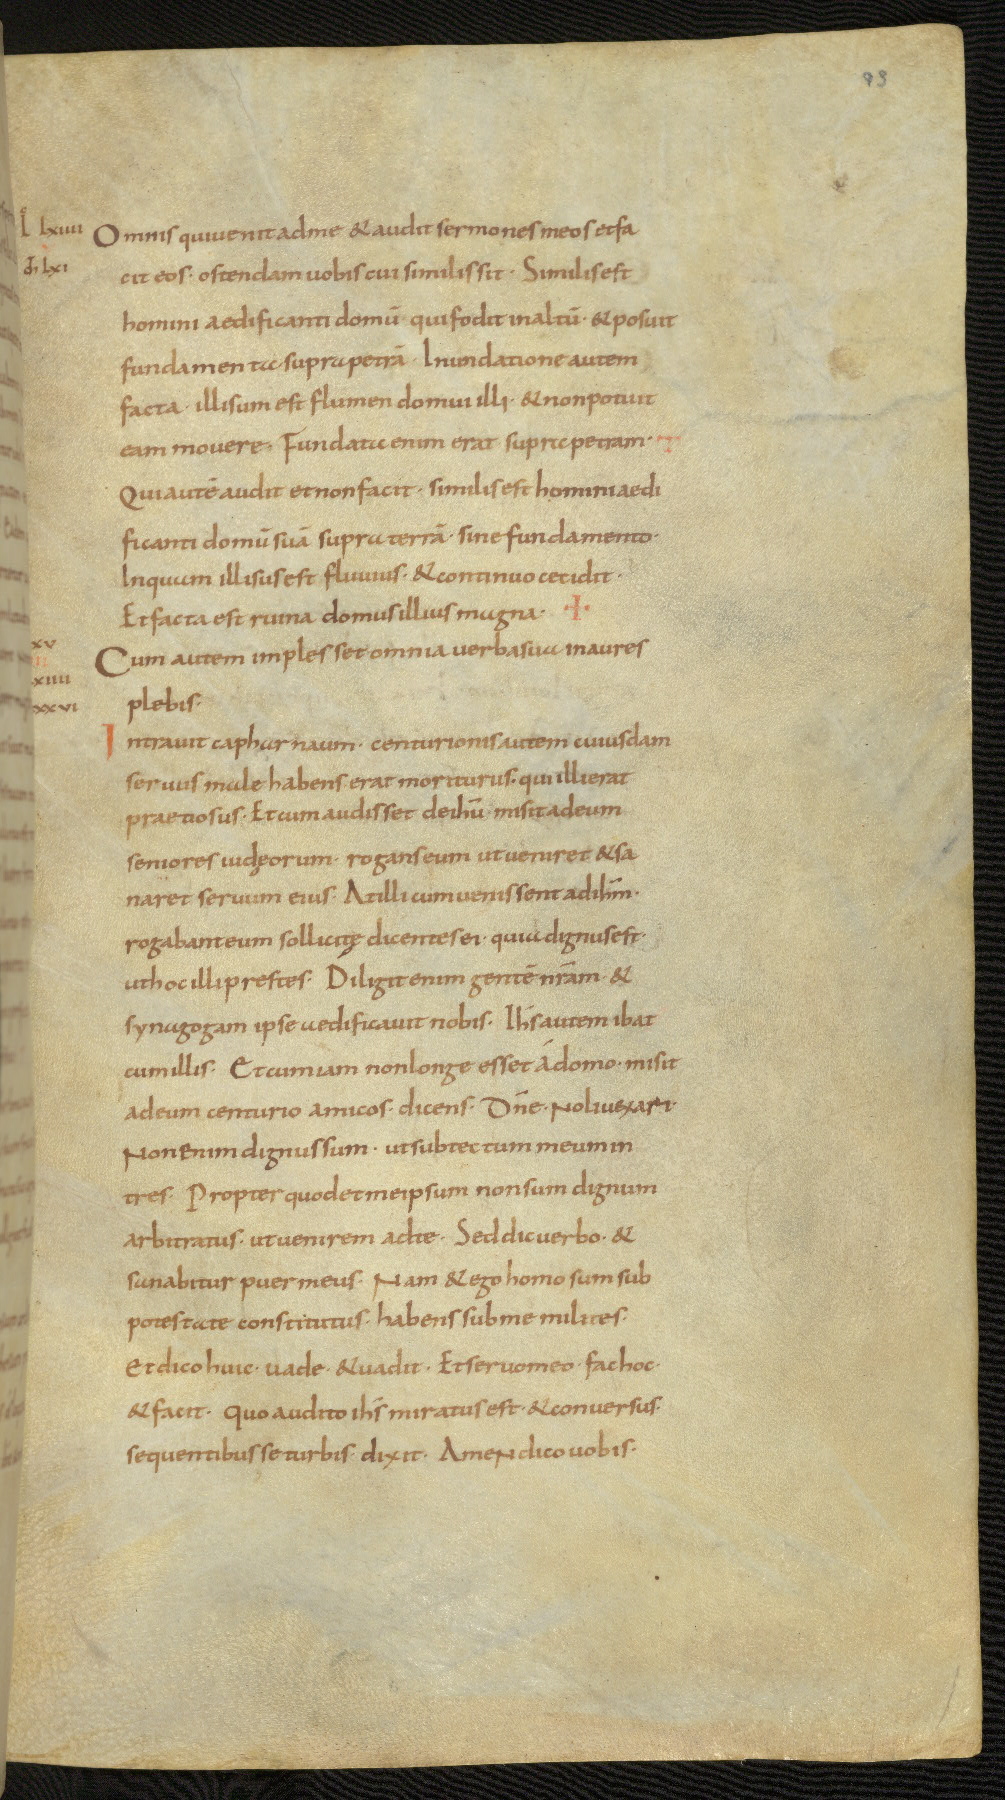 93
L lxiiii Omnis qui uenit ad me & audit sermones meos et fa
lxi cit eos· ostendam uobis cui similis sit· Similis est
homini aedificanti domū· qui fodit in altū· & posuit
fundamenta supra petrā· Inundatione autem
facta· illisum est flumen domui illi· & non potuit
eam mouere· Fundata enim erat supra petram·
Qui autē audit et non facit· similis est homini aedi
ficanti domū suā supra terrā· sine fundamento·
In quam illisus est fluuius· & continuo cecidit·
Et facta est ruina domus illius magna·
xv Cum autem implesset omnia uerba sua in aures
xiiii
xxvi plebis·
Intrauit capharnaum· centurionis autem cuiusdam
seruus male habens erat moriturus· qui illi erat
praetiosus· Et cum audisset de ihū misit ad eum
seniores iudęorum· rogans eum ut ueniret & sa
naret seruum eius· At illi cum uenissent ad ihm̄·
rogabant eum sollicitę dicentes ei· quia dignus est·
ut hoc illi prestes· Diligit enim gentē nr̄am· &
synagogam ipse aedificauit nobis· Ihs̄ autem ibat
cum illis· Et cum iam non longe esset á domo· misit
ad eum centurio amicos· dicens· Dn̄e· Noli uexari·
Non enim dignus sum· ut sub tectum meum in
tres· Propter quod et me ipsum non sum dignum
arbitratus· ut uenirem ad te· Sed dic uerbo· &
sanabitur puer meus· Nam & ego homo sum sub
potestate constitutus· habens sub me milites·
Et dico huic· uade· & uadit· Et seruo meo· fac hoc·
& facit· Quo audito ihs̄ miratus est· & conuersus·
sequentibus se turbis· dixit· Amen dico uobis·